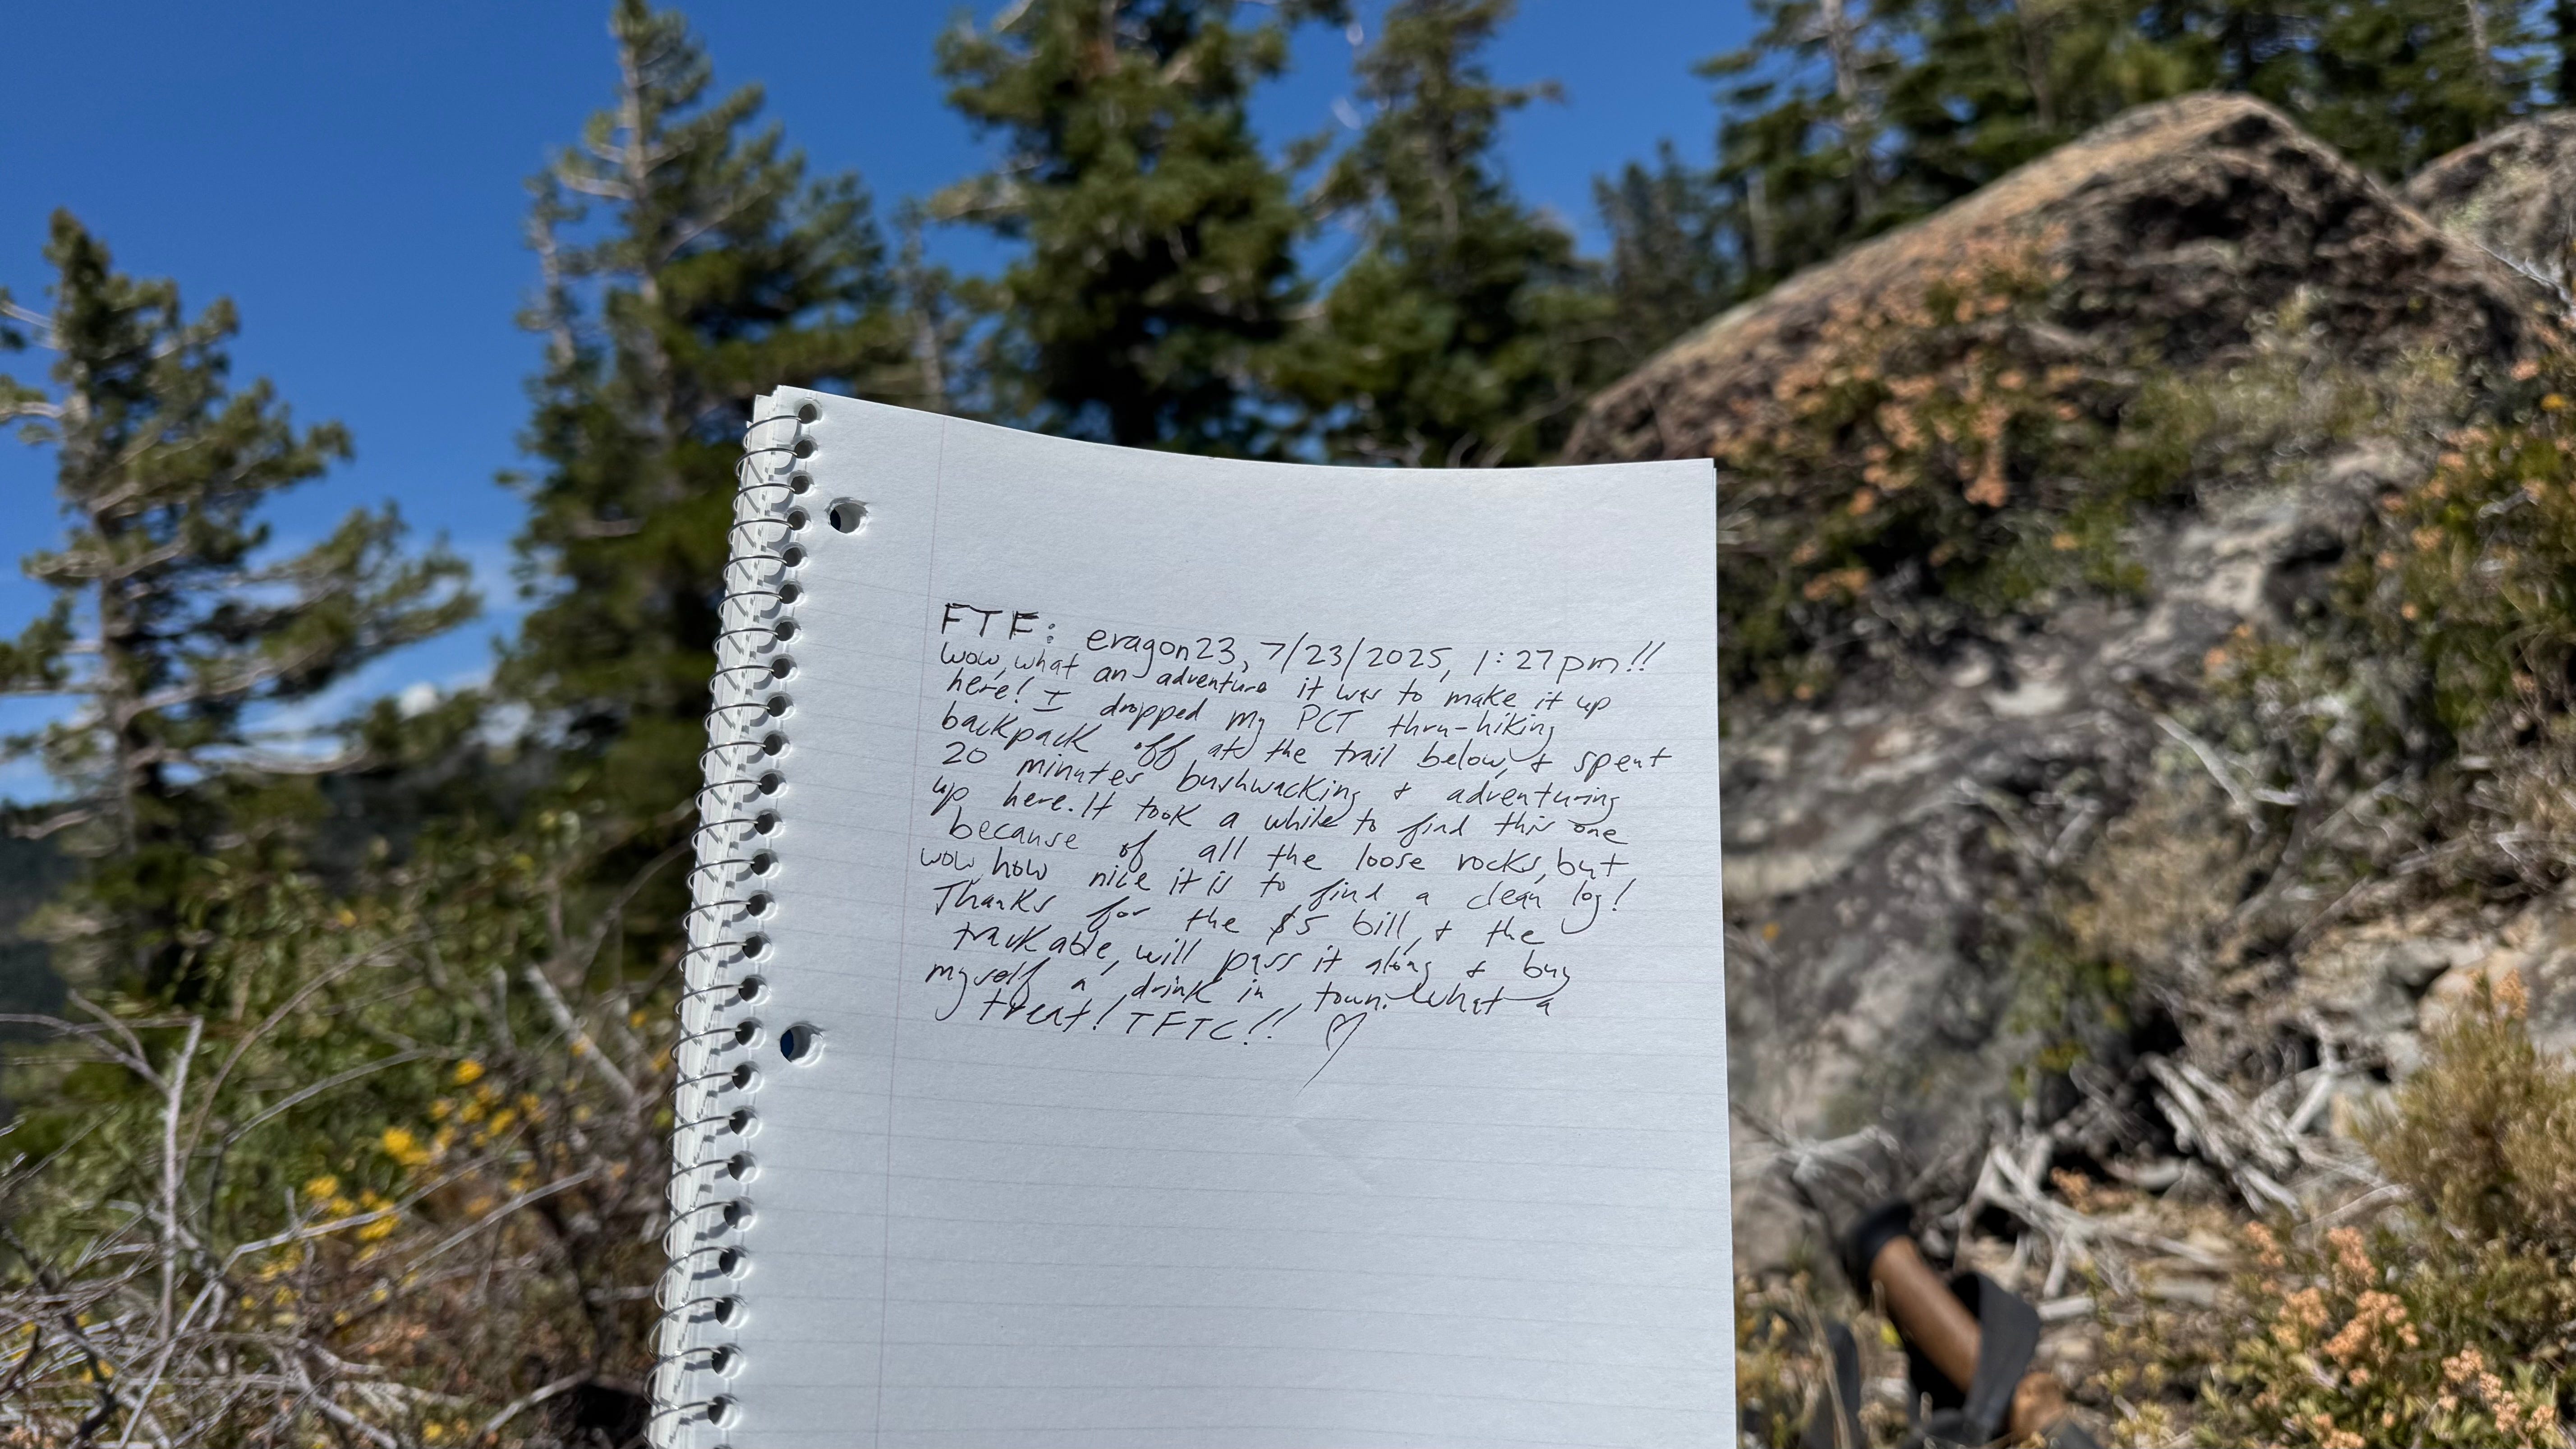 FTF: eragon23, 7/23/2025, 1:27pm!!
Wow, what an adventure it was to make it up
here! I dropped my PCT thru-hiking
backpack off at the trail below, & spent
20 minutes bushwacking & adventuring
up here. It took a while to find this one
because of all the loose rocks, but
wow, how nice it is to find a clean log!
Thanks for the $5 bill, & the
trackable, will pass it along & buy
myself a drink in town. What a
treat! TFTC!! ♡